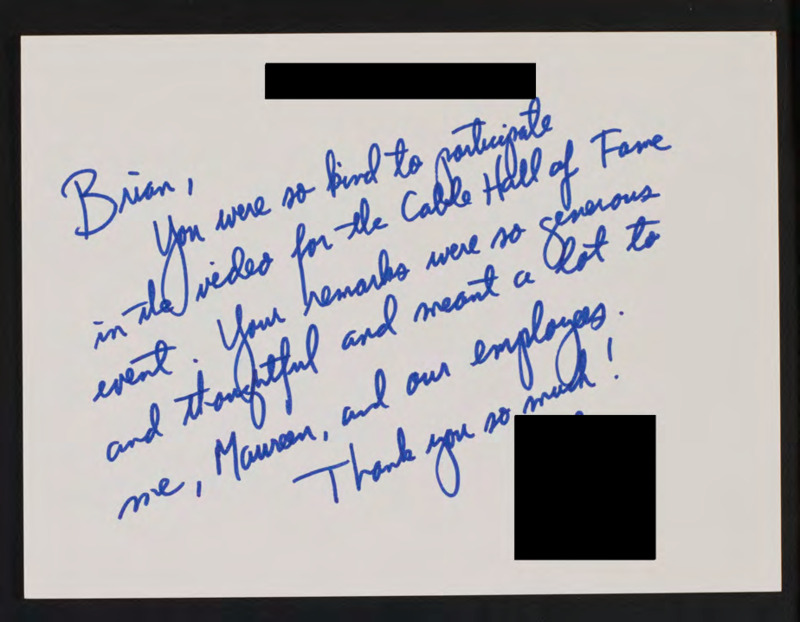 Brian,
You were so kind to participate
in the video for the Cable Hall of Fame
event. Your remarks were so generous
and thoughtful and meant a lot to
me, Maureen, and our employees.
Thank you so much!